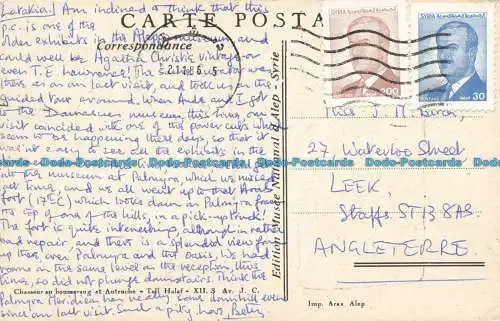 CARTE POSTALE
Correspondance
Latakia! Am inclined to think that this
p.c. is one of the
older exhibits in the Aleppo museum and
could well be Agatha Christie vintage or
even T.E. Lawrence! The
there as on our last visit, and took us on the
guided tour around. When Andr and I got
to the Damascus museum, this time, our
visit coincided with one of the power cuts which
seem to be happening these days, so that it
wasn't easy to see all the exhibits in the
museum at Palmyra, which we missed
last time, and we all went up to that Arab
fort (17th C) which looks down on Palmyra from
the top of one of the hills, in a pick-up truck!
The fort is quite interesting, although in rather
bad repair, and there is a splendid view from
up there over Palmyra and the oasis. We had
rooms on the same level as the reception, this
time, so did not plunge downstairs. Think the
Palmyra Meridien has really gone downhill even
since our last visit. Such a pity. Love, Betty.
Chasseur au boumerang et Autruche - Tell Halaf - XII. S Av. J. C.
Edition Musée National d'Alep - Syrie
Imp. Aras Alep.
2.11.86
SYRIA
200
SYRIA
30
Miss J. M. Baron,
27 Waterloo Street
LEEK,
Staffs ST13 8AB
ANGLETERRE
Dodo-Postcards Dodo-Postcards Dodo-Postcards Dodo-Postcards